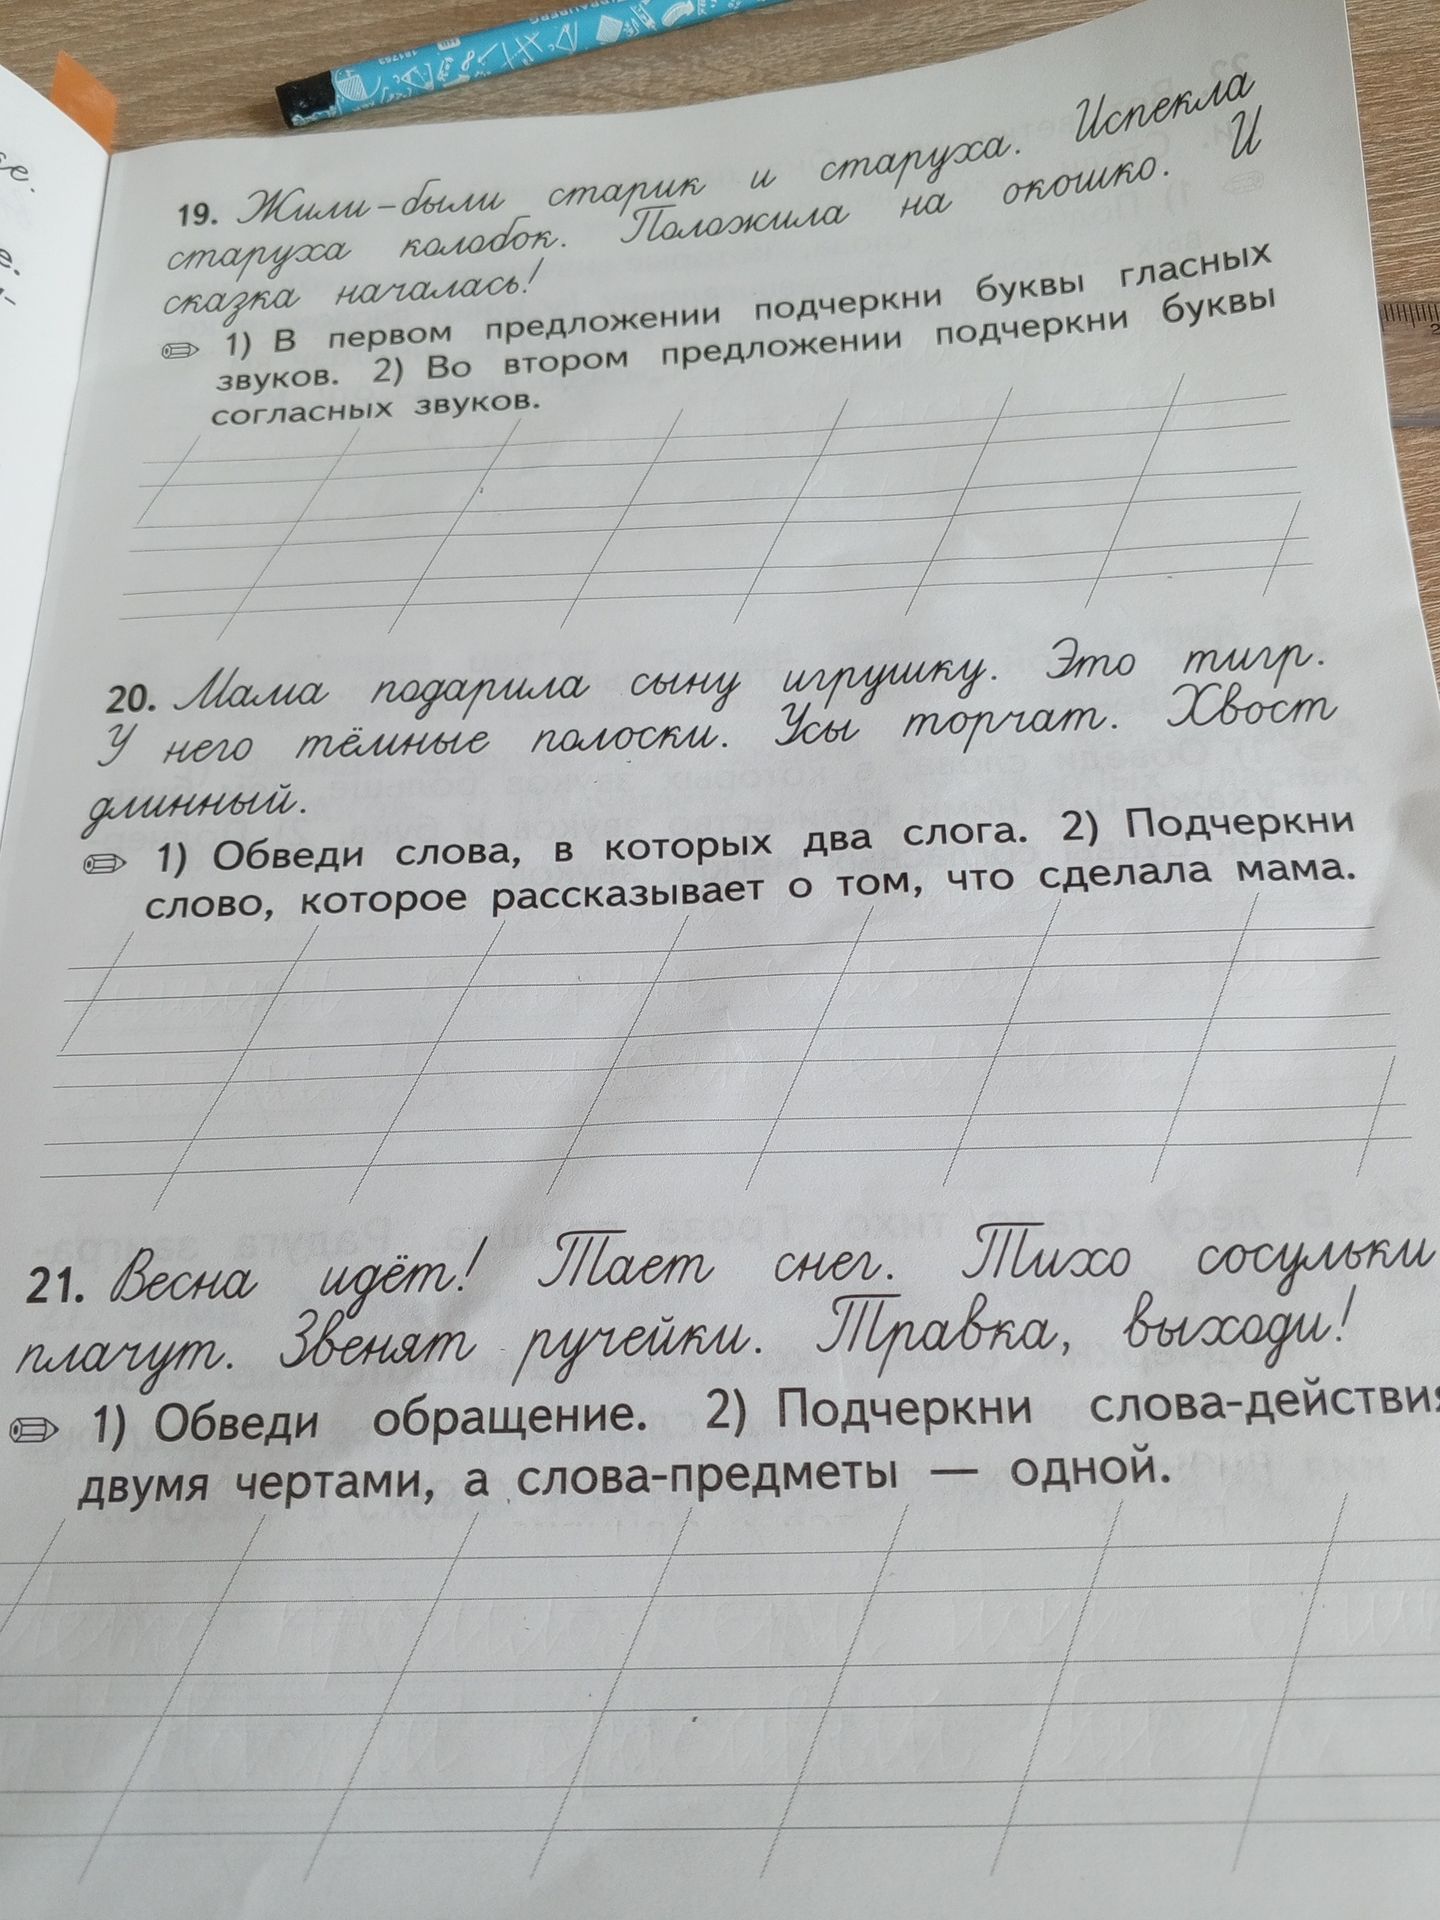 19. Жили-были старик и старуха. Испекла
старуха колобок. Положила на окошко. И
сказка началась!
1) В первом предложении подчеркни буквы гласных
звуков. 2) Во втором предложении подчеркни буквы
согласных звуков.
20. Мама подарила сыну игрушку. Это тигр.
У него тёмные полоски. Усы торчат. Хвост
длинный.
1) Обведи слова, в которых два слога. 2) Подчеркни
слово, которое рассказывает о том, что сделала мама.
21. Весна идёт! Тает снег. Тихо сосульки
плачут. Звенят ручейки. Травка, выходи!
1) Обведи обращение. 2) Подчеркни слова-действия
двумя чертами, а слова-предметы — одной.